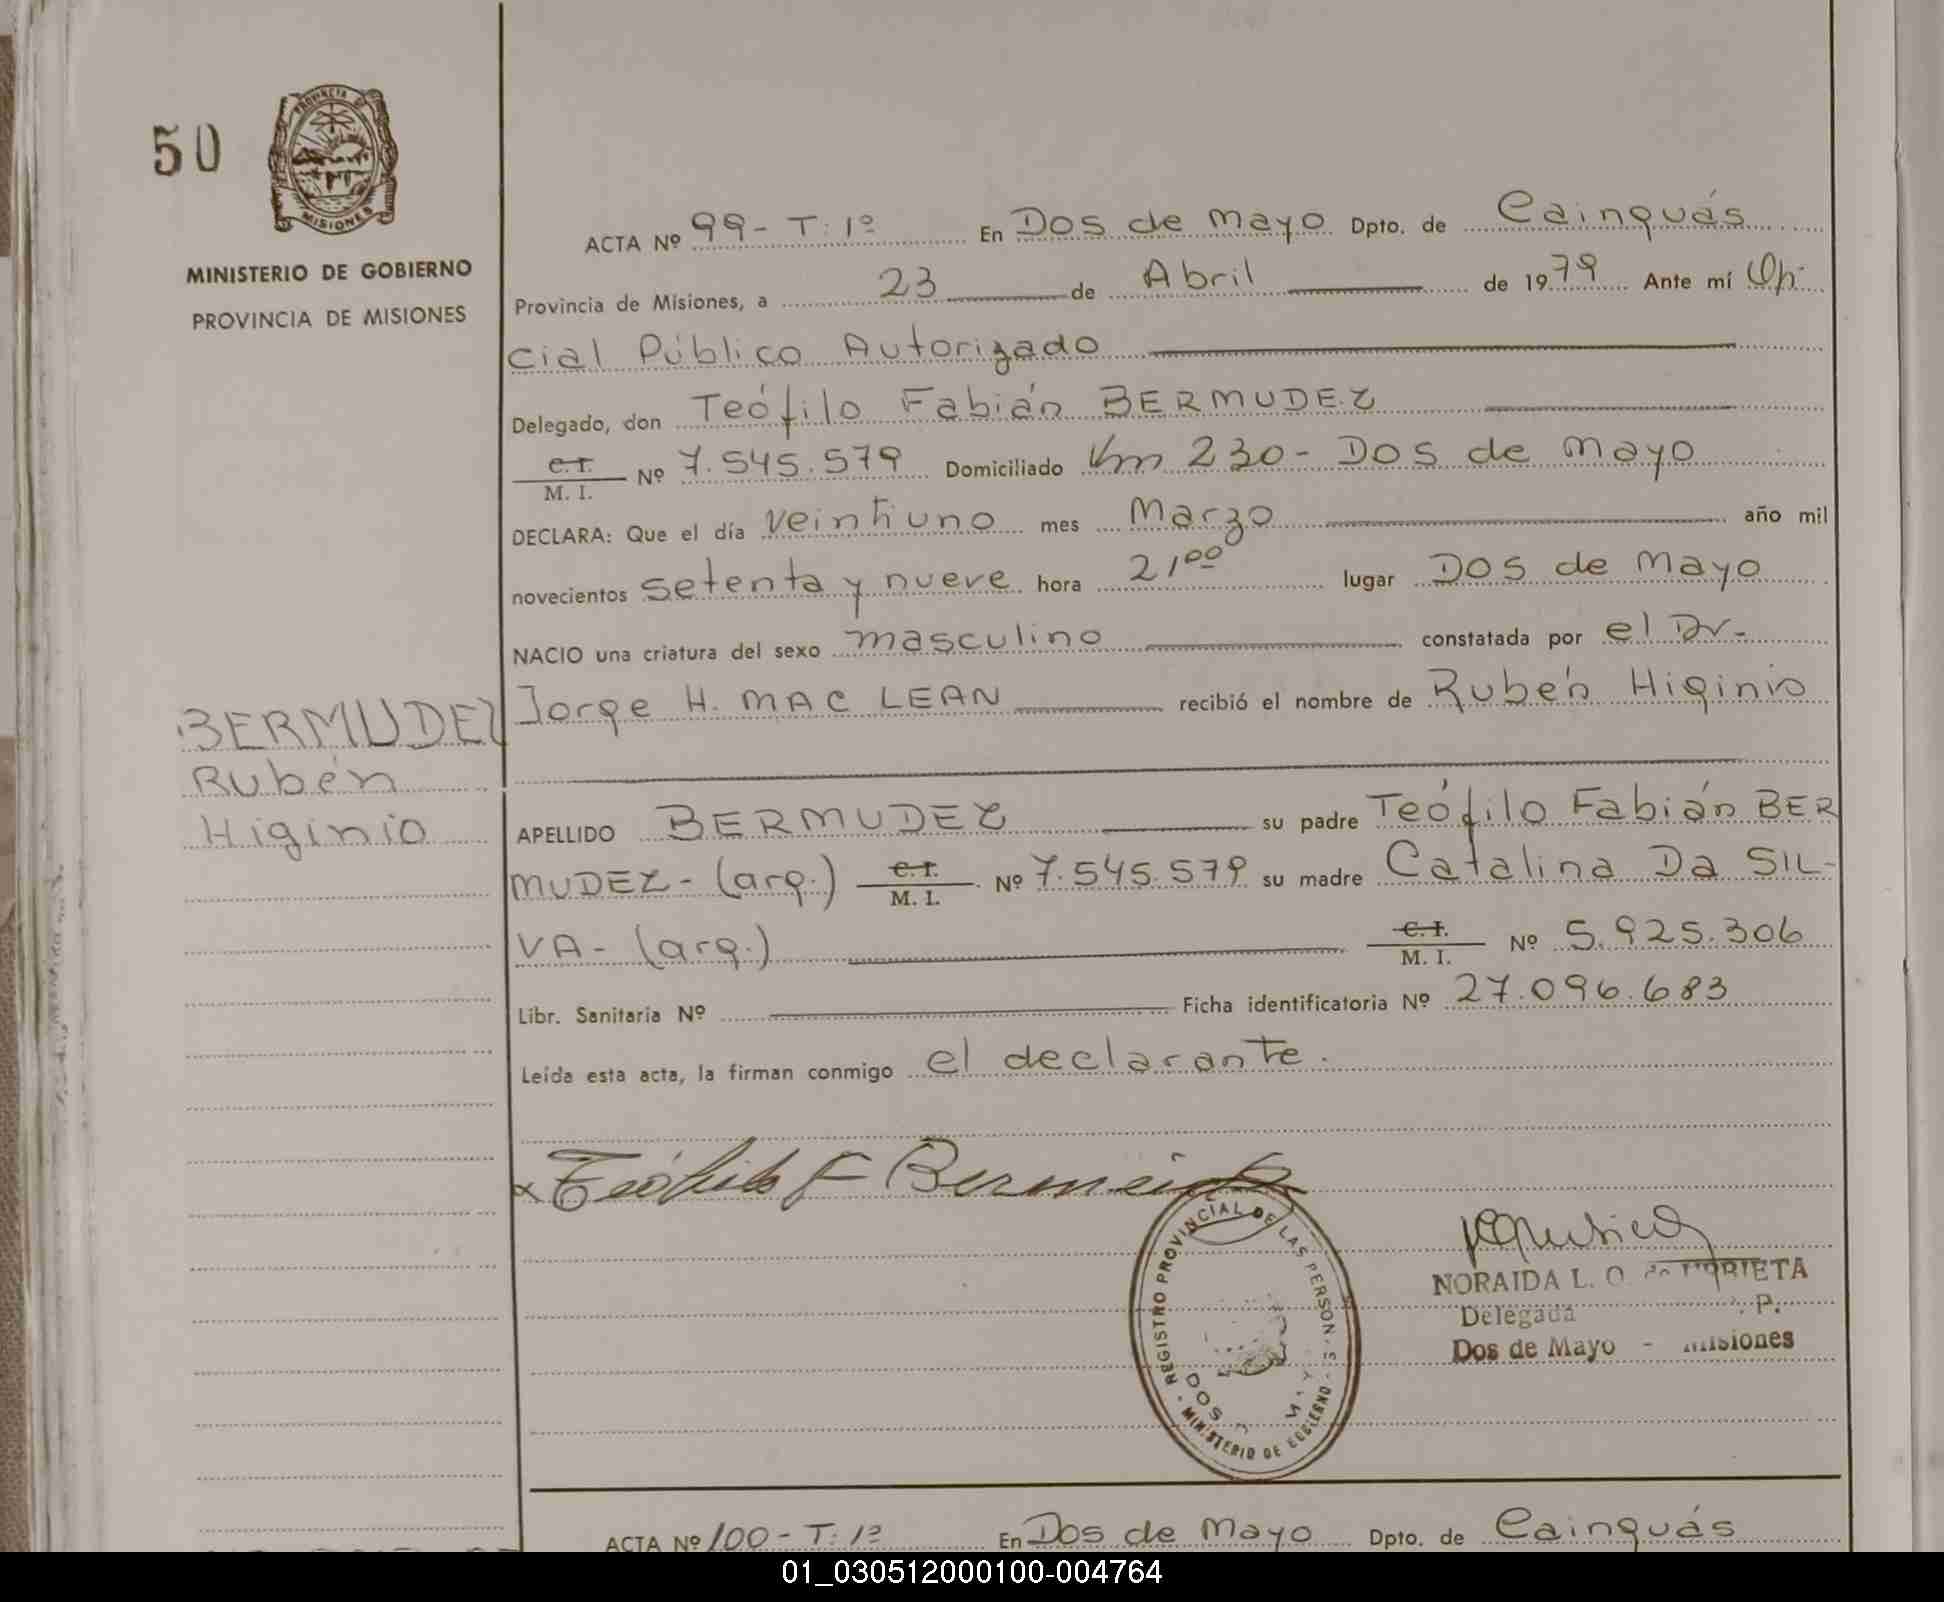 50
PROVINCIA DE
MISIONES
MINISTERIO DE GOBIERNO
PROVINCIA DE MISIONES
ACTA Nº 99 - T: 1º En Dos de Mayo Dpto. de Cainguás
Provincia de Misiones, a 23 de Abril de 1979 Ante mí Ofi-
cial Público Autorizado
Delegado, don Teófilo Fabián BERMUDEZ
C. I. / M. I. Nº 7.545.579 Domiciliado Km 230 - Dos de Mayo
DECLARA: Que el día veintiuno mes Marzo año mil
novecientos setenta y nueve hora 21⁰⁰ lugar Dos de Mayo
NACIO una criatura del sexo masculino constatada por el Dr.
Jorge H. MAC LEAN recibió el nombre de Rubén Higinio
BERMUDEZ
Rubén
Higinio
APELLIDO BERMUDEZ su padre Teófilo Fabián BER
MUDEZ - (arg.) C. I. / M. I. Nº 7.545.579 su madre Catalina Da SIL-
VA - (arg.) C. I. / M. I. Nº 5.925.306
Libr. Sanitaria Nº Ficha identificatoria Nº 27.096.683
Leída esta acta, la firman conmigo el declarante.
x Teófilo F Bermudez
REGISTRO PROVINCIAL DE LAS PERSONAS
MINISTERIO DE GOBIERNO
DOS MAYO
NORAIDA L. O. de URRIETA
Delegada P.
Dos de Mayo - Misiones
ACTA Nº 100 - T: 1º En Dos de Mayo Dpto. de Cainguás
01_030512000100-004764